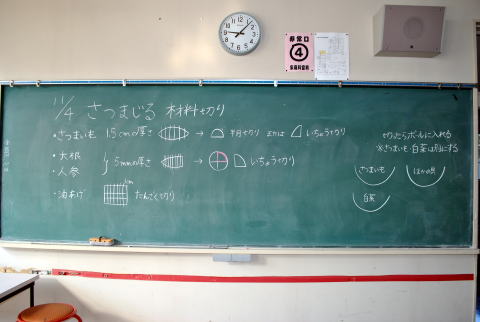 非常口
4
11/4 さつまじる 材料切り
・さつまいも 1.5cmの厚さ → 半月切り または いちょう切り
・大根
・人参
5mmの厚さ → いちょう切り
・油あげ 1cm たんざく切り
切ったらボールに入れる
※さつまいも・白菜は別にする
さつまいも ほかの具
白菜